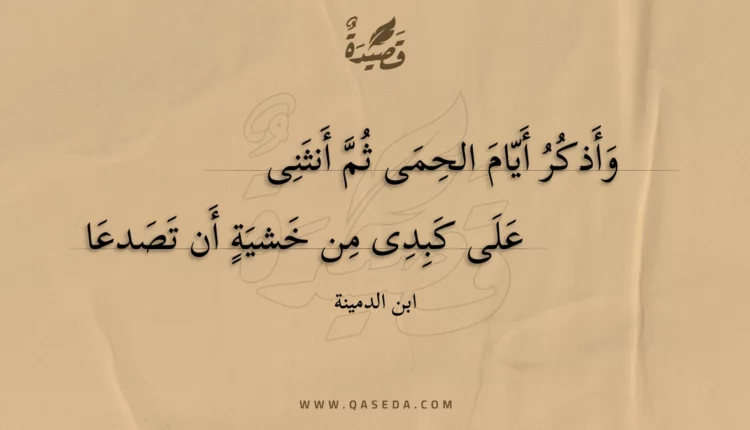 قَصِيدَةٌ
وَأَذكُرُ أَيّامَ الحِمَى ثُمَّ أَنثَنِى
عَلَى كَبِدِى مِن خَشيَةٍ أَن تَصَدعَا
ابن الدمينة
WWW.QASEDA.COM